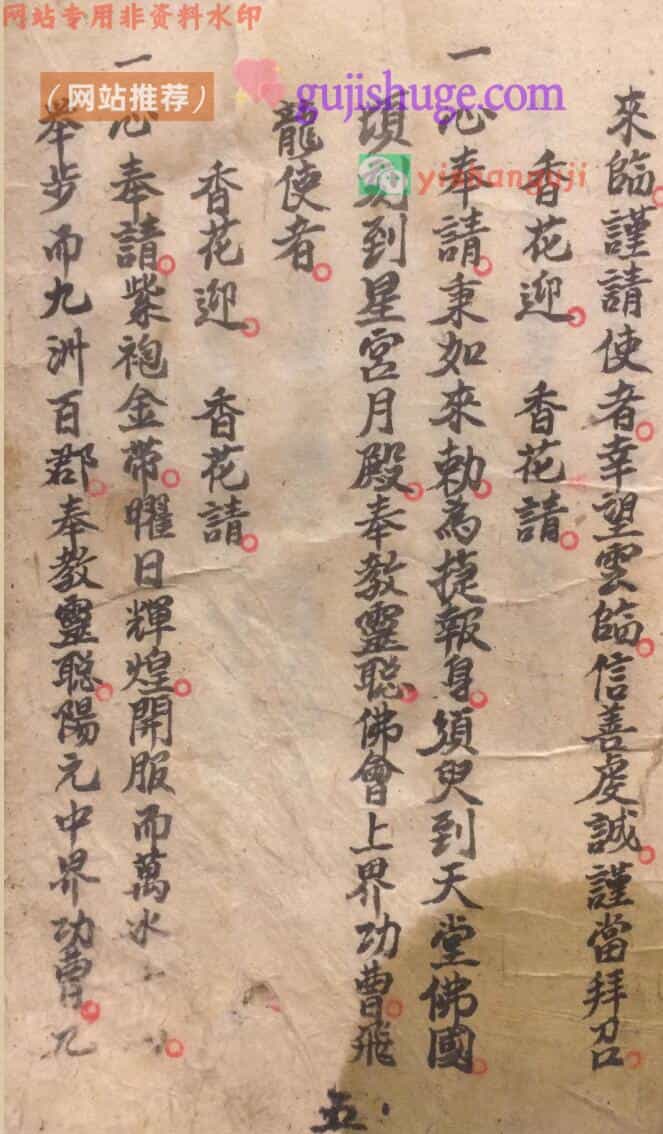 网站专用非资料水印
（网站推荐）
gujishuge.com
yishanguji
來臨謹請使者幸望雲臨信善虔誠謹當拜召
香花迎 香花請
一心奉請秉如來勅為捷報身須臾到天堂佛國
須到星宮月殿奉教靈聡佛會上界功曹飛
龍使者
香花迎 香花請
一心奉請紫袍金帶曜日輝煌開服而萬水
举步而九洲百郡奉教靈聡陽元中界功曹九
五